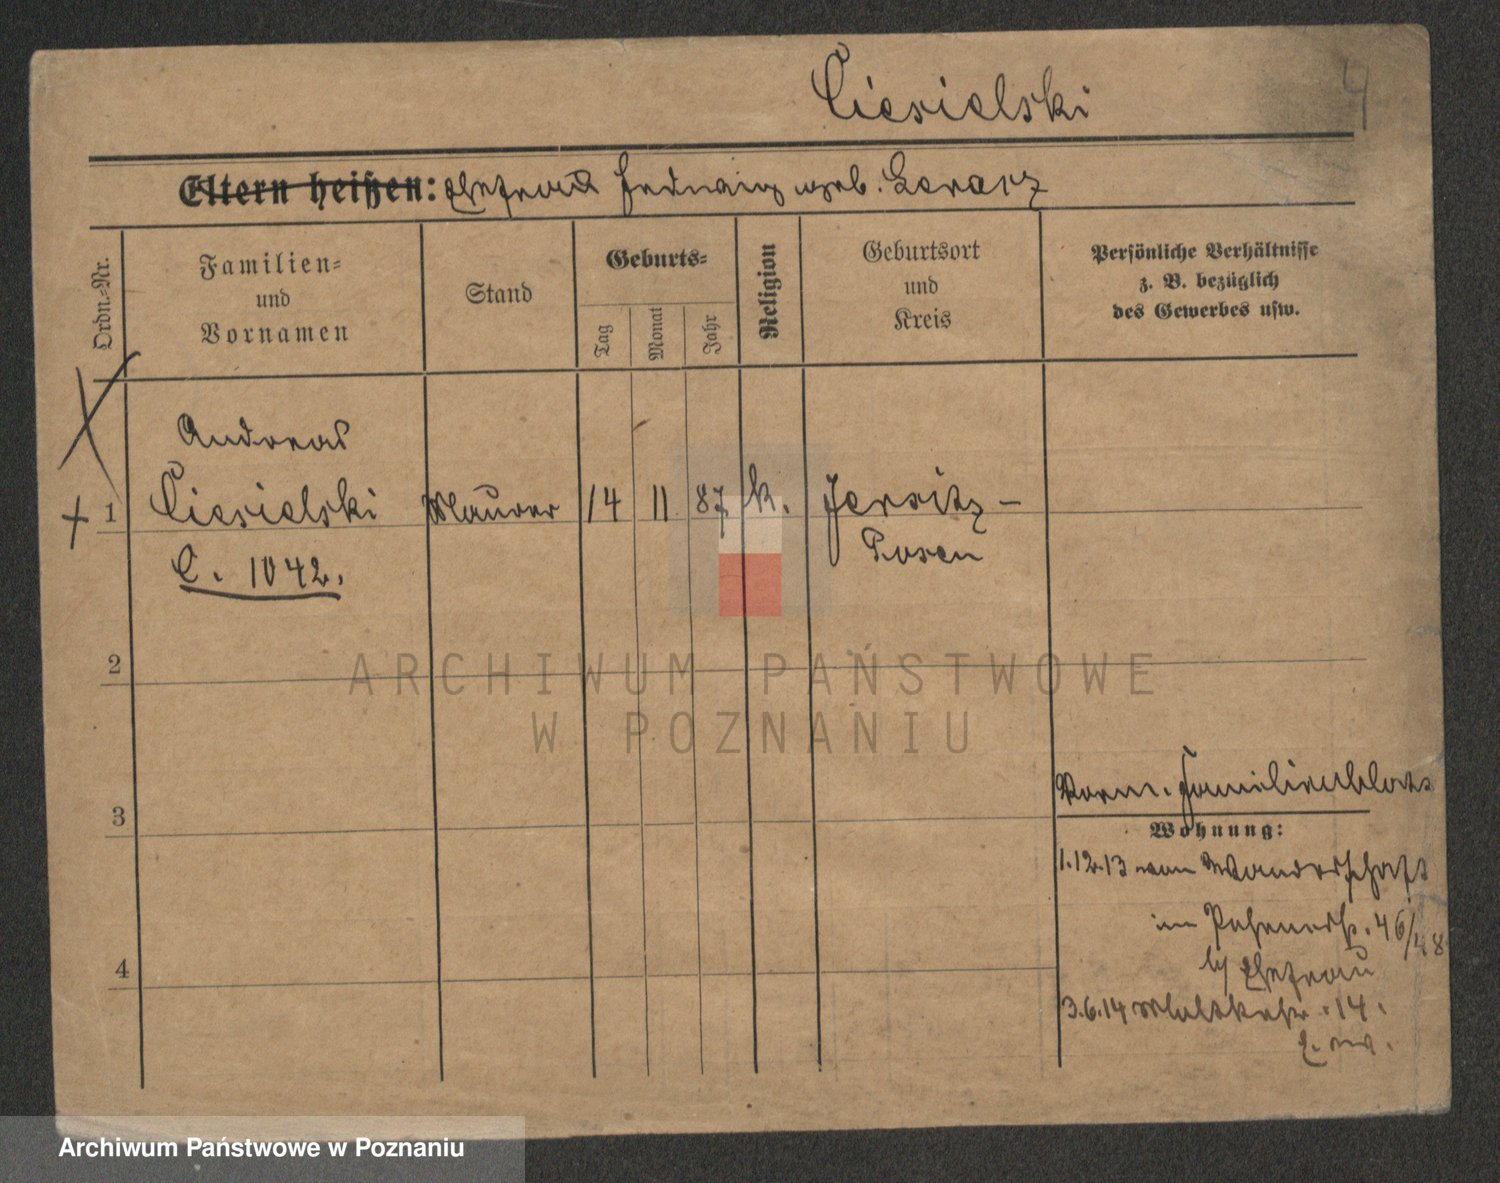 4
Ciesielski
Eltern heißen: Ehefrau Hedwig geb.
Ordn.-Nr.
Familien-
und
Vornamen
Stand
Geburts-
Tag
Monat
Jahr
Religion
Geburtsort
und
Kreis
Persönliche Verhältnisse
z. B. bezüglich
des Gewerbes usw.
Andreas
1 Ciesielski Maurer 14 11 87 k. Jersitz-
Posen
C. 1042.
2
3
4
Vorm. Familienblatt
Wohnung:
1.12.13 von Wanderschaft
im 46/48
bei Ehefrau
3.6.14 14.
ARCHIWUM PAŃSTWOWE
W POZNANIU
Archiwum Państwowe w Poznaniu